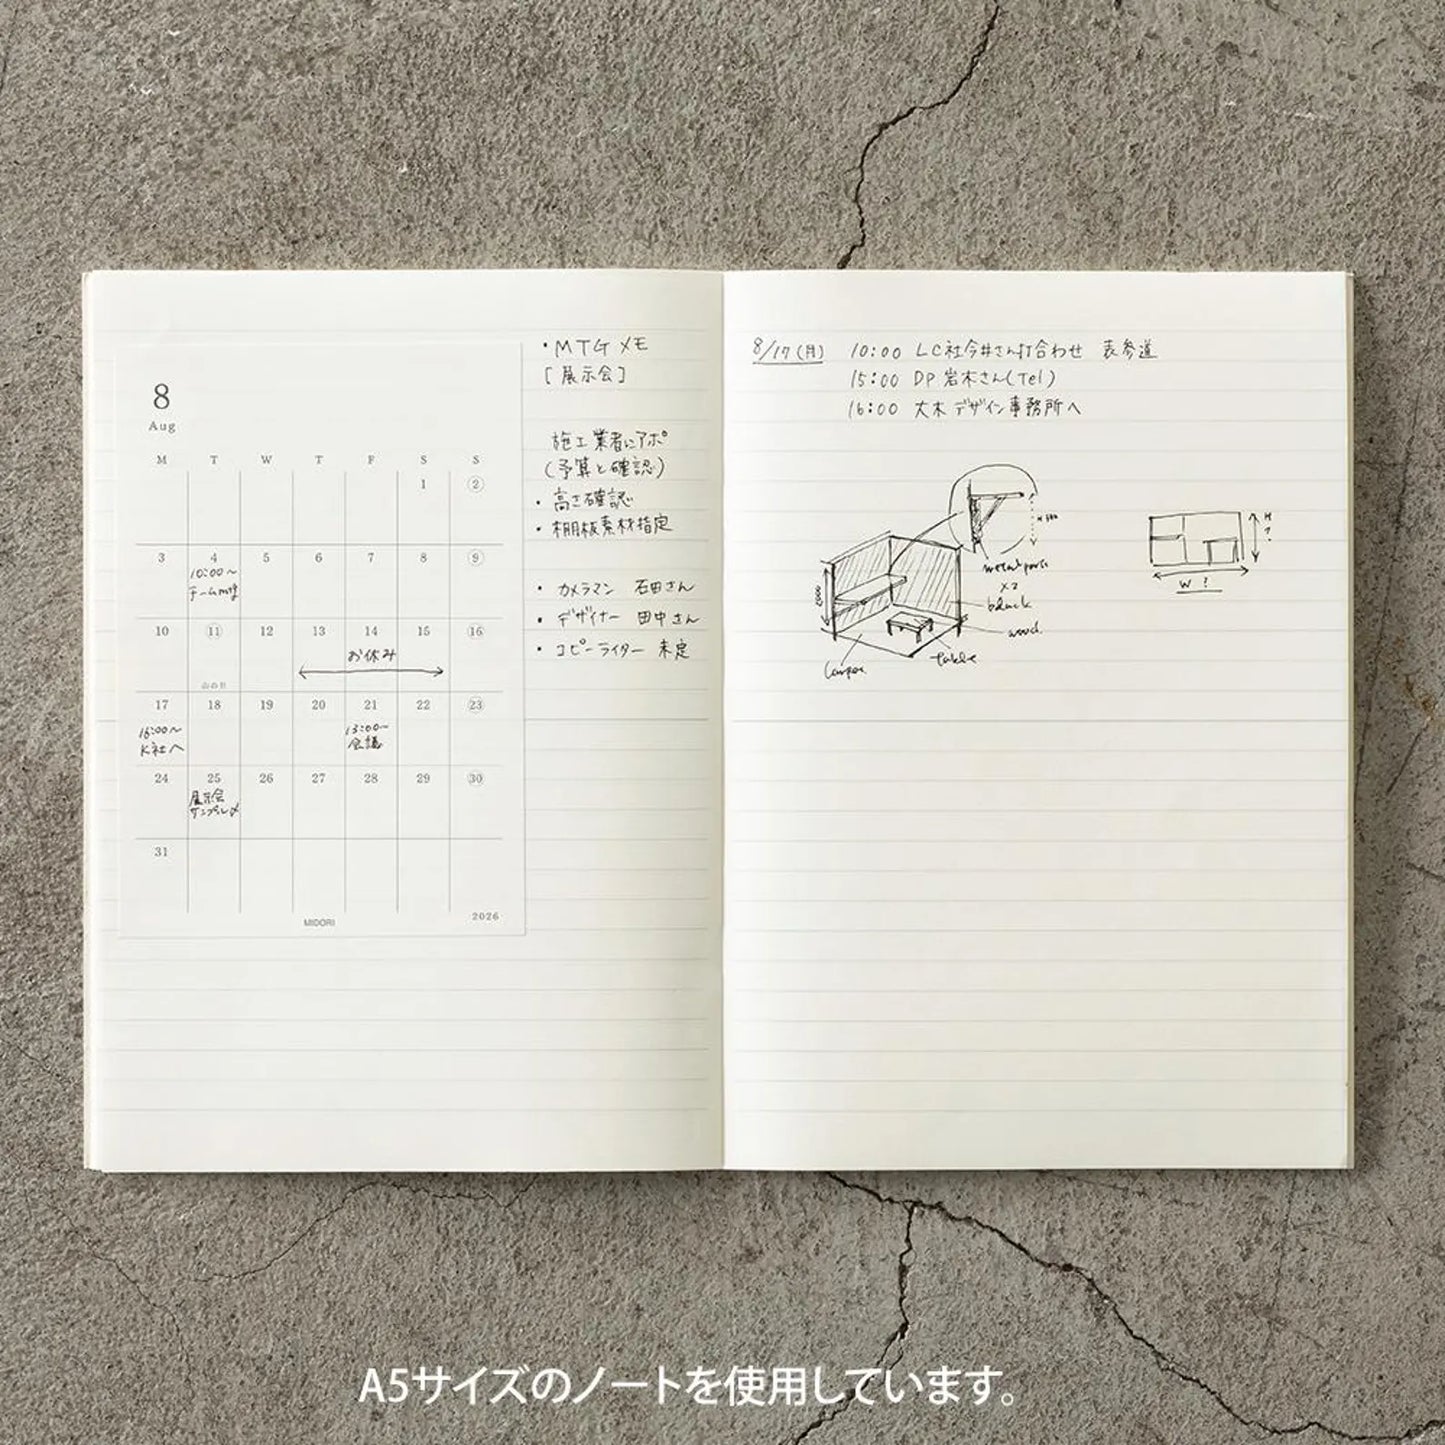 8
Aug
M T W T F S S
1 2
3 4 5 6 7 8 9
10:00～
チームmtg
10 11 12 13 14 15 16
お休み
山の日
17 18 19 20 21 22 23
16:00～
K社へ
13:00～
会議
24 25 26 27 28 29 30
展示会
サンプル〆
31
MIDORI
2026
・MTG メモ
[展示会]
施工業者にアポ
(予算と確認)
・高さ確認
・棚板素材指定
・カメラマン 石田さん
・デザイナー 田中さん
・コピーライター 未定
8/17(月) 10:00 LC社今井さん打合わせ 表参道
15:00 DP岩木さん(Tel)
16:00 大木デザイン事務所へ
metal parts
×2
black
wood
table
H
?
W ?
A5サイズのノートを使用しています。